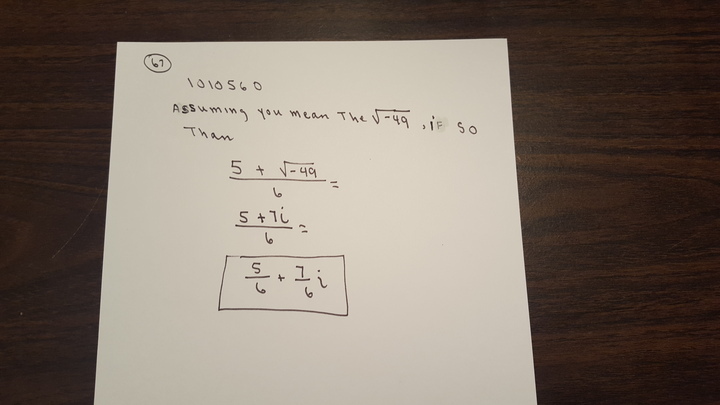 67
1010560
Assuming you mean The √-49, if so
Than
5 + √-49
6 =
5 + 7i
6 =
5/6 + 7/6 i